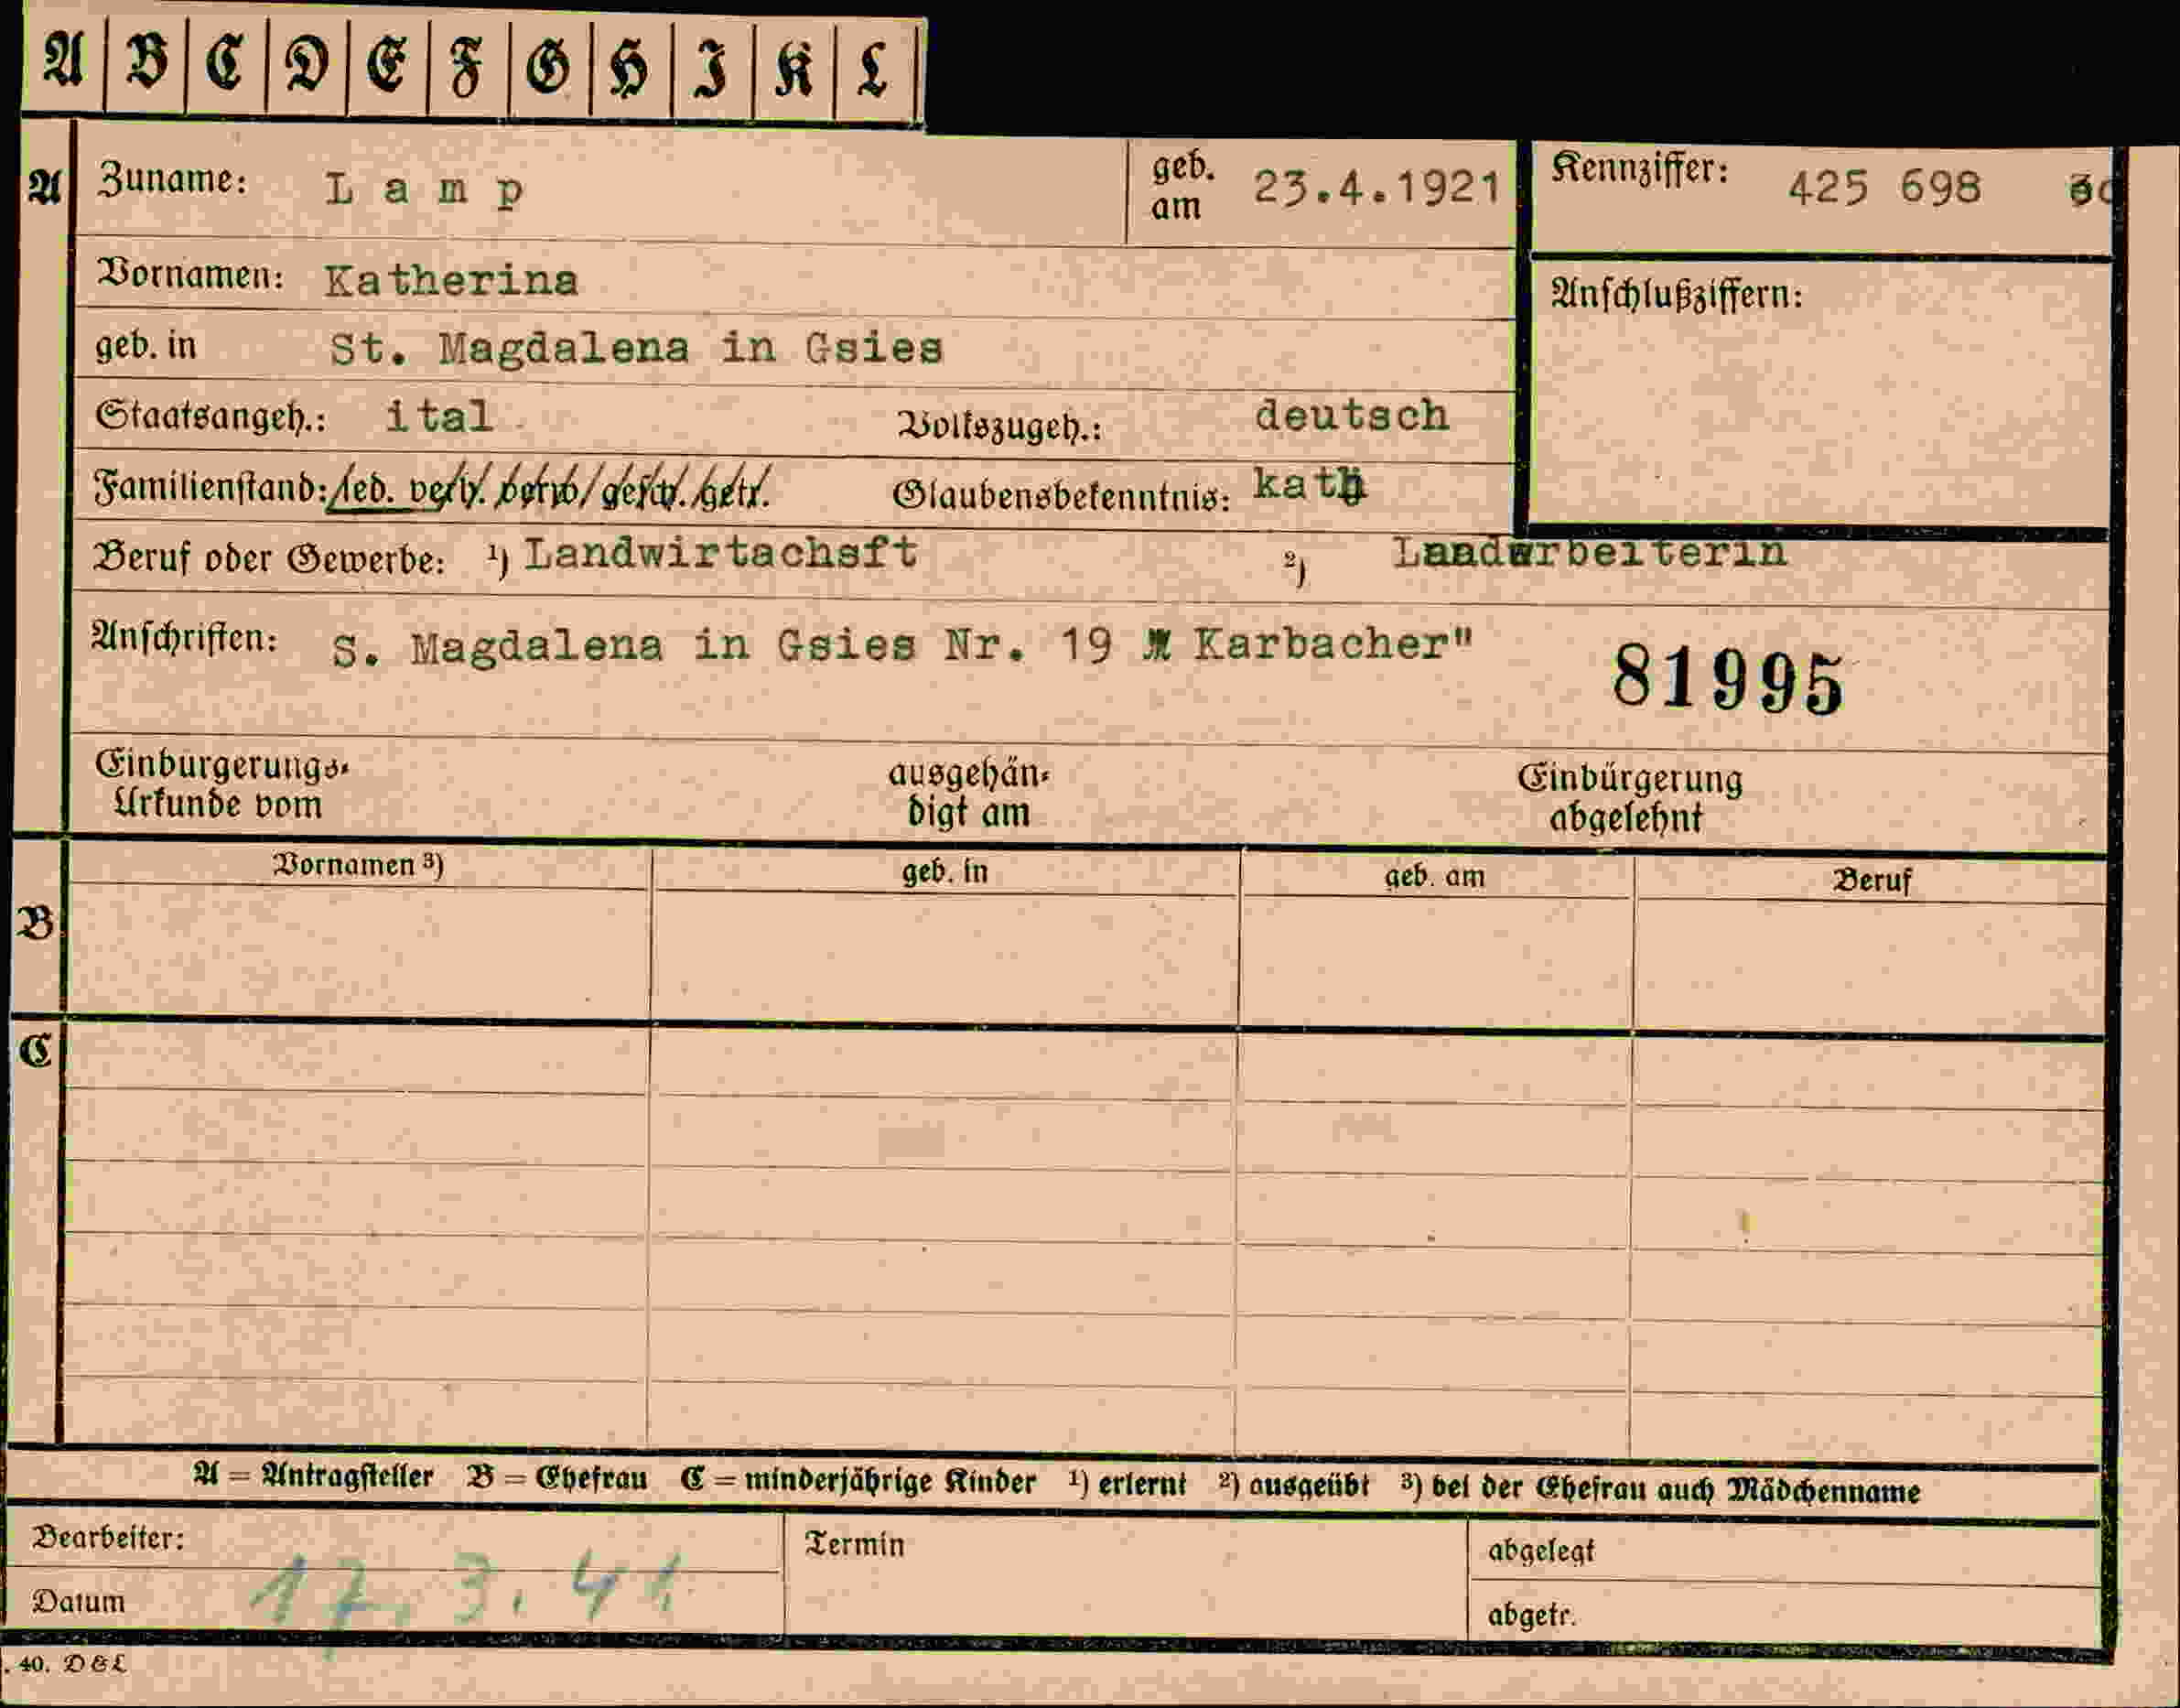 A B C D E F G H I K L
A Zuname: Lamp geb. am 23.4.1921 Kennziffer: 425 698
Vornamen: Katherina Anschlußziffern:
geb. in St. Magdalena in Gsies
Staatsangeh.: ital Volkszugeh.: deutsch
Familienstand: led. verh. verw. gesch. getr. Glaubensbekenntnis: kath
Beruf oder Gewerbe: ¹) Landwirtachsft ²) Laadarbeiterin
Anschriften: S. Magdalena in Gsies Nr. 19 Karbacher"
81995
Einbürgerungs- ausgehän- Einbürgerung
Urkunde vom digt am abgelehnt
Vornamen ³) geb. in geb. am Beruf
B
C
A = Antragsteller B = Ehefrau C = minderjährige Kinder ¹) erlernt ²) ausgeübt ³) bei der Ehefrau auch Mädchenname
Bearbeiter: Termin abgelegt
Datum 17.3.41 abgetr.
. 40. D&L